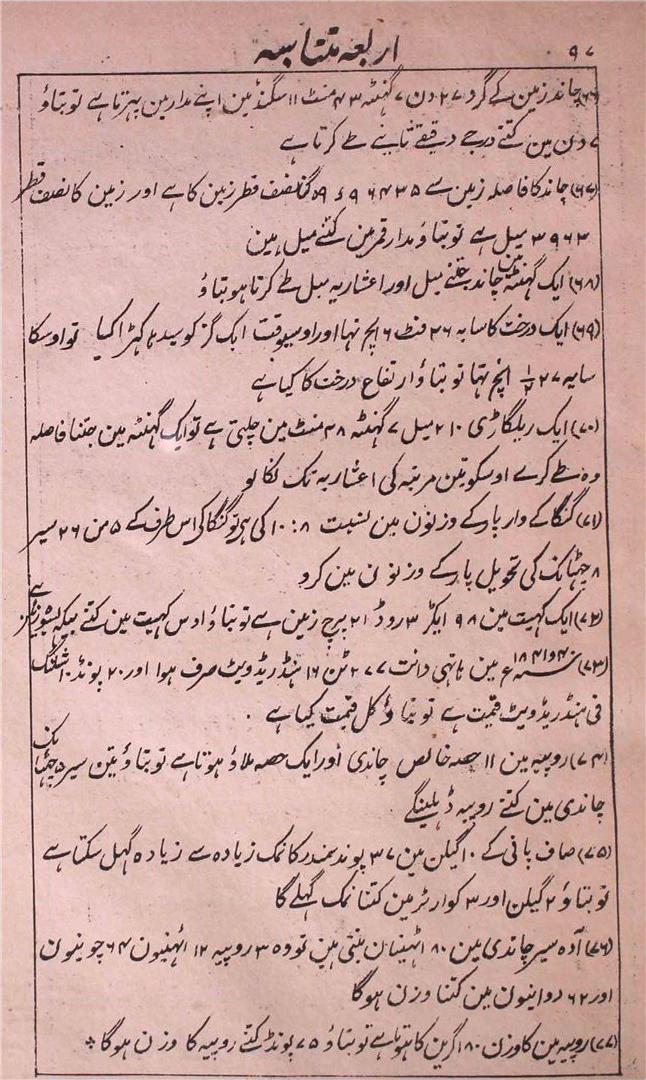 ۹۷
اربعہ متناسبہ
(۶۶) چاند زمین کے گرد ۲۷ دن ۷ گہنٹہ ۴۳ منٹ ۱۱ سکنڈ مین اپنے مدار مین پہرتا ہے تو بتاؤ
۷ دن مین کتنے درجے دقیقے ثانیے طے کرتا ہے
(۶۷) چاند کا فاصلہ زمین سے نصف قطر زمین کا ہے اور زمین کا نصف قطر
۳۹۶۳ میل ہے تو بتاؤ مدار قمر مین کتنے میل ہین
(۶۸) ایک گہنٹہ مین چاند کتنے میل اور اعشاریہ میل طے کرتا ہو بتاؤ
(۶۹) ایک درخت کا سایہ ۲۶ فٹ ۶ انچ تہا اور اوسیوقت ایک گز کو سیدہا کہڑا کیا تو اوسکا
سایہ ۲۷ ۱/۲ انچ تہا تو بتاؤ ارتفاع درخت کا کیا ہے
(۷۰) ایک ریلگاڑی ۲۱۰ میل ۷ گہنٹہ ۴۸ منٹ مین چلتی ہے تو ایک گہنٹہ مین جتنا فاصلہ
وہ طے کرے اوسکو تین مرتبہ کی اعشاریہ تک نکالو
(۷۱) گنگا کے وار پار کے وزنون مین نسبت ۸ : ۱۰ کی ہی تو گنگا کی اس طرف کے ۵ من ۲۶ سیر
۸ چہٹانک کی تحویل پار کے وزنون مین کرو
(۷۲) ایک کہیت مین ۹۸ ایکڑ ۳ روڈ ۲۱ پرچ زمین ہے تو بتاؤ اوس کہیت مین کتنے بیگہ ہے
(۷۳) مین ہاتہی دانت ۲۷۷ ٹن ۱۶ ہنڈریڈویٹ صرف ہوا اور ۲۰ پونڈ ۱۰ شلنگ
فی ہنڈریڈویٹ قیمت ہے تو بتاؤ کل قیمت کیا ہے
(۷۴) روپیہ مین ۱۱ حصہ خالص چاندی اور ایک حصہ ملاؤ ہوتا ہے تو بتاؤ تین سیر ۵ چہٹانک
چاندی مین کتنے روپیہ ڈہلینگے
(۷۵) صاف پانی کے ۱۰ گیلن مین ۳۷ پونڈ سمندر کا نمک زیادہ سے زیادہ گہل سکتا ہے
تو بتاؤ ۲ گیلن اور ۳ کوارٹر مین کتنا نمک گہلے گا
(۷۶) آدہ سیر چاندی مین ۸۰ اٹہنیان بنتی ہین تو وہ ۳ روپیہ ۱۲ اٹہنیون ۶۴ چونیون
اور ۶۲ دوانیون مین کتنا وزن ہوگا
(۷۷) روپیہ مین کا وزن ۱۸۰ گرین کا ہوتا ہے تو بتاؤ ۷۵ پونڈ کتنے روپیہ کا وزن ہوگا